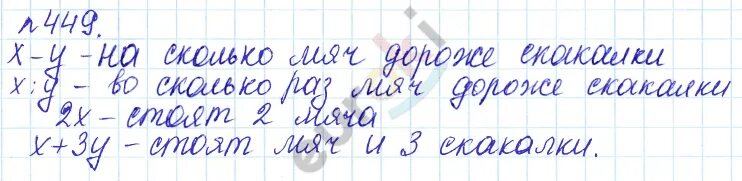 №449.
х-у - на сколько мяч дороже скакалки
х:у - во сколько раз мяч дороже скакалки
2х - стоят 2 мяча
х+3у - стоят мяч и 3 скакалки.
eureki